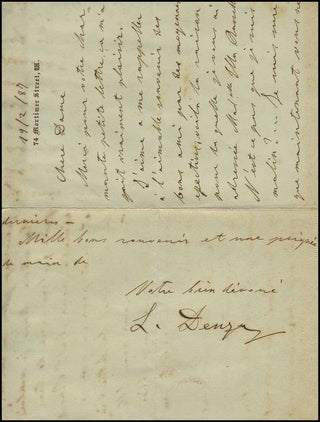 74 Mortimer Street, W.
19/2/87
Chère Dame
Merci pour votre char-
mante petite lettre, ça m'a
fait vraiment plaisir.
J'aime a me rappeller
à l'aimable souvenir des
bons amis par des moyens
voilà la raison
par la quelle je vous ai
adressée
N'est ce pas que je suis
malin? ... Je suis
que maintenant vous
dernières —
Mille bons souvenir et une poignée
de main de
Votre bien dévoué
L. Denza